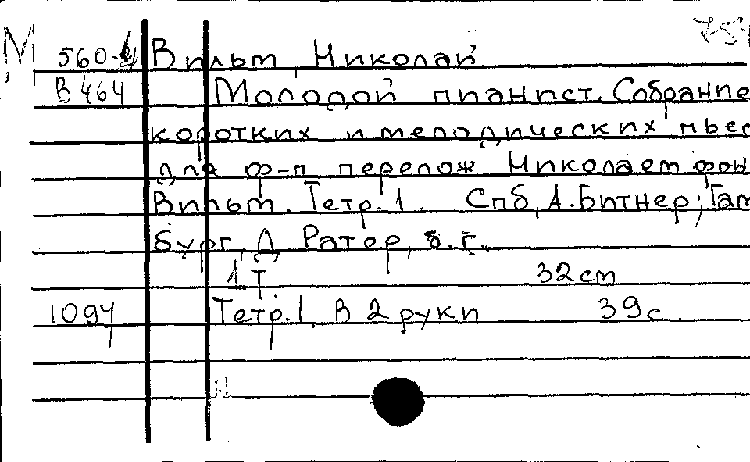 М 560-4 Вильт, Николай
В 464 Молодой пианист. Собрание
коротких и мелодических пьес
для ф-п перелож Николаем фон
Вильт. Тетр. 1. Спб, А. Битнер; Гам
бург, Д. Ратер, б. г.
1 т. 32 cm
1094 Тетр. 1. В 2 руки 39 с.